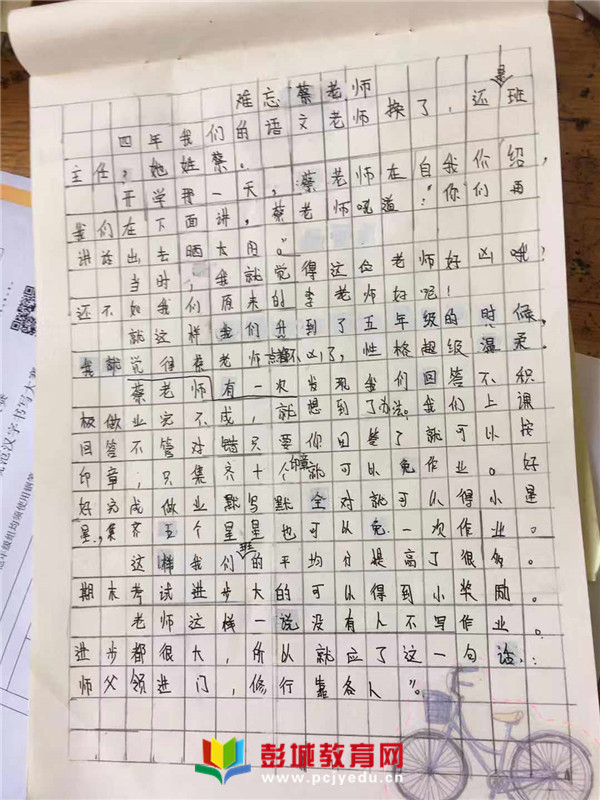 难忘蔡老师
四年我们的语文老师换了，还是班
主任，她姓蔡。
开学第一天，蔡老师在自我介绍，
我们在下面讲，蔡老师吼道："你们再
讲话出去晒太阳。"
当时，我就觉得这位老师好凶哦！
还不如我们原来的李老师好呢！
就这样我们升到了五年级的时候，
我就觉得蔡老师不凶了，性格超级温柔。
蔡老师有一次发现我们回答不积
极做业完不成，就想到了办法。我们上课
回答不管对错只要你回答了就可以按
印章；只集齐十个印章就可以免作业。好
好完成做业默写默全对就可以得小星
星，集齐五个星星也可以免一次作业。
这样我们班的平均分提高了很多。
期末考试进步大的可以得到小奖励。
老师这样一说没有人不写作业。
进步都很大，所以就应了这一句话：
师父领进门，修行靠各人"。
彭城教育网
www.pcjyedu.cn